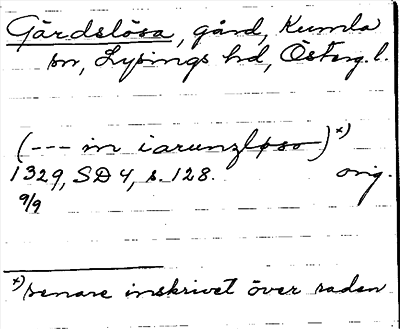 Gärdslösa, gård, Kumla
sn, Lysings hd, Österg. l.
(--- in iarunzløso) x)
1329, SD 4, s. 128. orig.
9/9
x) senare inskrivet över raden